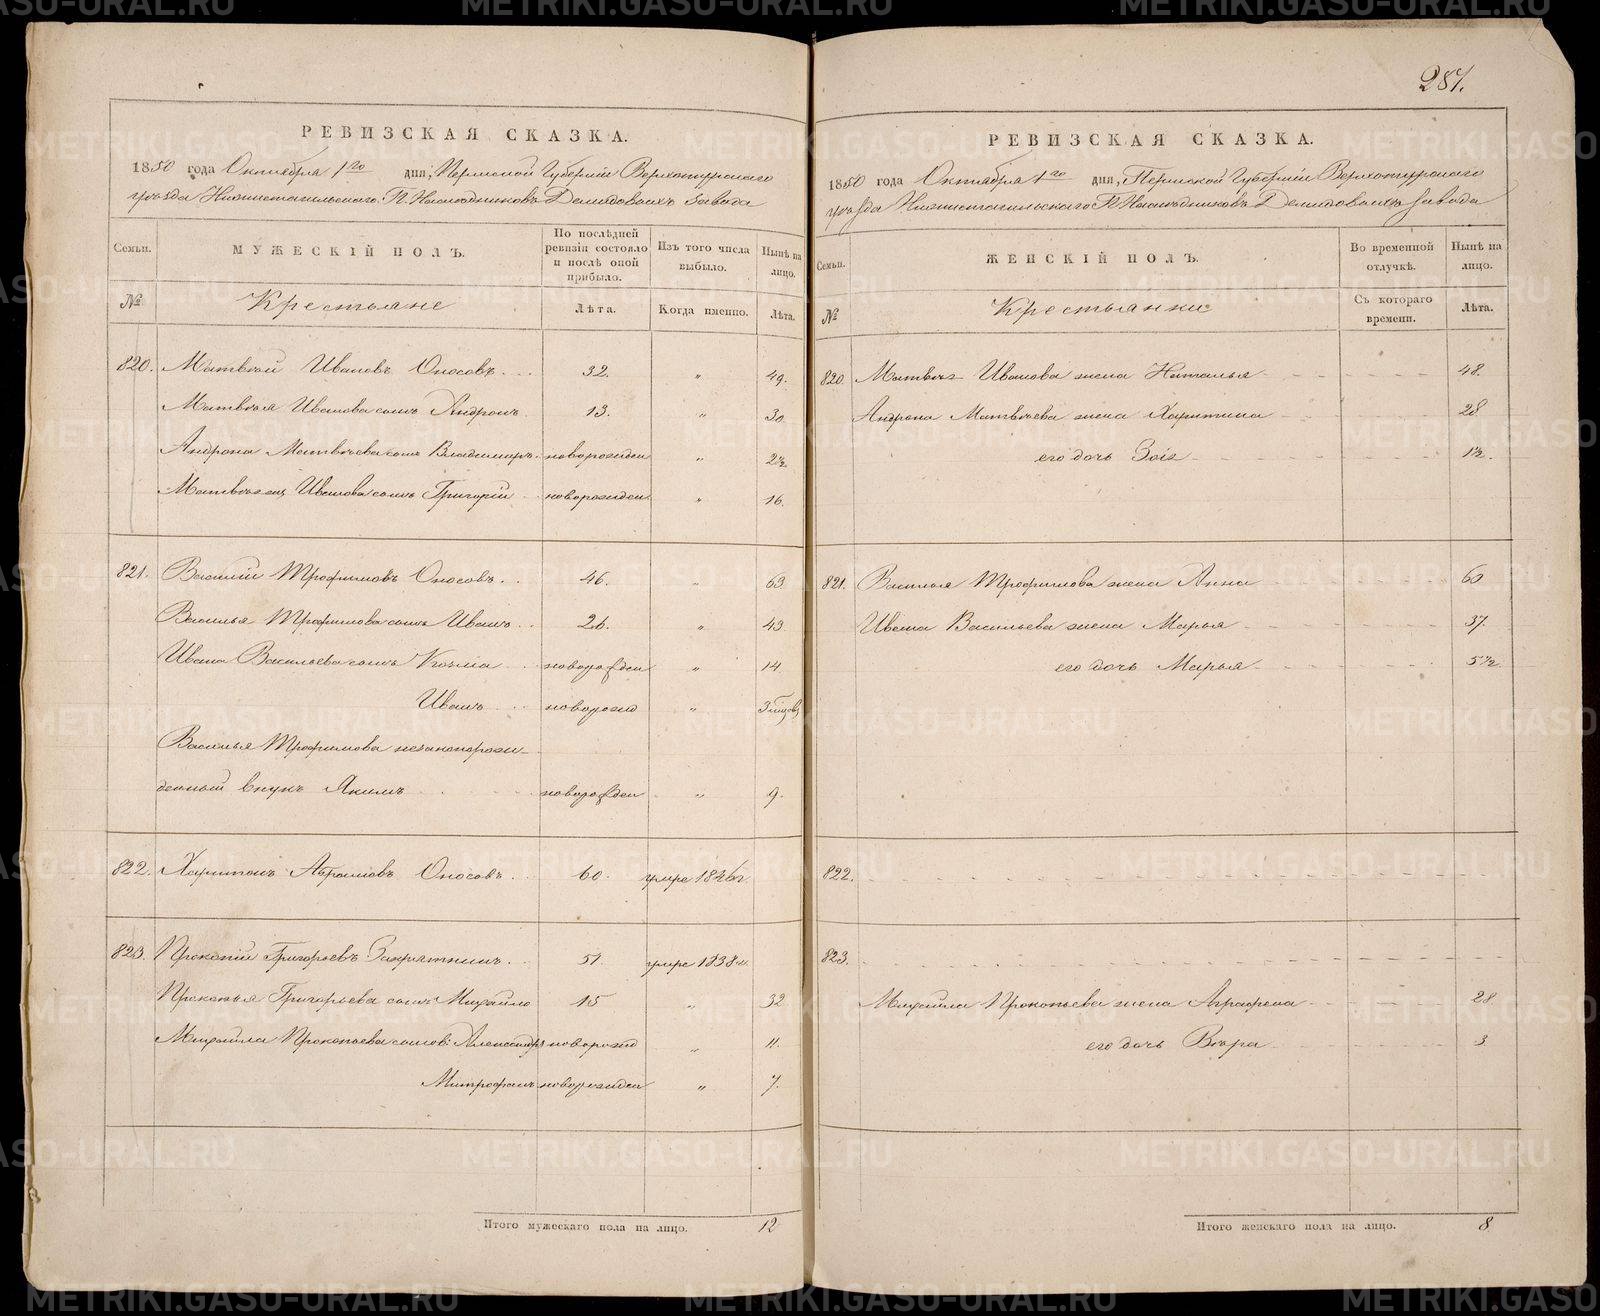 287.
РЕВИЗСКАЯ СКАЗКА.
1850 года Октября 1го дня, Пермской Губерніи Верхотурскаго
уѣзда Нижнетагильскаго П. Наслѣдниковъ Демидовыхъ завода
Семьи.
МУЖЕСКІЙ ПОЛЪ.
По послѣдней ревизіи состояло и послѣ оной прибыло.
Изъ того числа выбыло.
Нынѣ на лицо.
№
Крестьяне
Лѣта.
Когда именно.
Лѣта.
820. Матвѣй Ивановъ Оносовъ 32. " 49.
Матвѣя Иванова сынъ Андронъ 13. " 30
Андрона Матвѣева сынъ Владимиръ новорожден " 2½
Матвѣя Иванова сынъ Григорій новорожден " 16.
821. Василій Трофимовъ Оносовъ 46. " 63
Василья Трофимова сынъ Иванъ 26. " 43
Ивана Васильева сынъ Козма новорожден " 14
Иванъ новорожд "
Василья Трофимова незаконорож-
денный внукъ Якимъ новорожден " 9.
822. Харитонъ Абрамовъ Оносовъ 60. умре 1846г
823. Прокопій Григорьевъ 51. умре 1838г.
Прокопья Григорьева сынъ Михайло 15 " 32
Михайла Прокопьева сыновь: Александръ новорожд " 11.
Митрофанъ новорожден " 7.
Итого мужескаго пола на лицо. 12
РЕВИЗСКАЯ СКАЗКА.
1850 года Октября 1го дня, Пермской Губерніи Верхотурскаго
уѣзда Нижнетагильскаго П. Наслѣдниковъ Демидовыхъ завода
Семьи.
ЖЕНСКІЙ ПОЛЪ.
Во временной отлучкѣ.
Нынѣ на лицо.
№
Крестьянки
Съ котораго времени.
Лѣта.
820. Матвѣя Иванова жена Наталья 48.
Андрона Матвѣева жена Харитина 28
его дочь Зоія 1½.
821. Василья Трофимова жена Анна 60
Ивана Васильева жена Марья 37.
его дочь Марья 5½
822.
823.
Михайла Прокопьева жена Аграфена 28
его дочь Вѣра 3
Итого женскаго пола на лицо. 8
METRIKI.GASO-URAL.RU